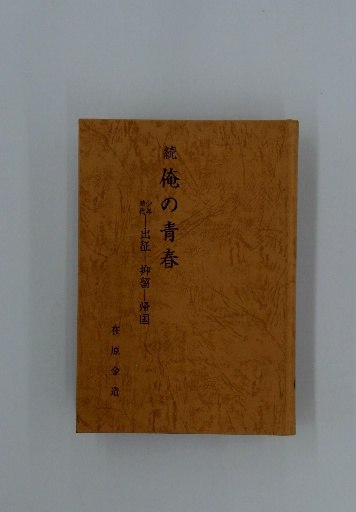 続 俺の青春
少年時代―出征―抑留―帰国
在原金造